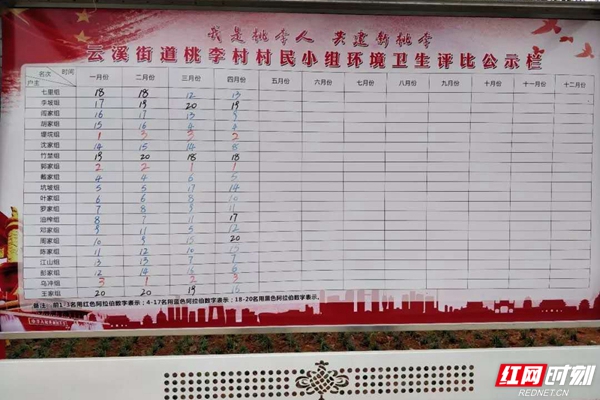 我是桃李人 共建新桃李
云溪街道桃李村村民小组环境卫生评比公示栏
名次 时间 户主 一月份 二月份 三月份 四月份 五月份 六月份 七月份 八月份 九月份 十月份 十一月份 十二月份
七里组 18 18 12 13
李坡组 17 19 20 19
阎家组 16 17 13 9
胡家组 15 16 4 4
堰垸组 1 3 3 2
沈家组 14 15 14 8
竹垄组 19 20 18 18
郭家组 2 2 1 1
戴家组 4 4 6 5
坑坡组 5 5 17 14
叶家组 6 6 8 10
罗家组 7 8 9 11
油榨组 8 7 11 17
邓家组 9 11 5 12
周家组 10 9 15 20
陈家组 11 12 10 15
江山组 13 13 7 7
彭家组 12 14 16 6
乌冲组 3 1 2 3
王家组 20 20 19 16
备注：前1-3名用红色阿拉伯数字表示；4-17名用蓝色阿拉伯数字表示；18-20名用黑色阿拉伯数字表示。
红网时刻
REDNET.CN